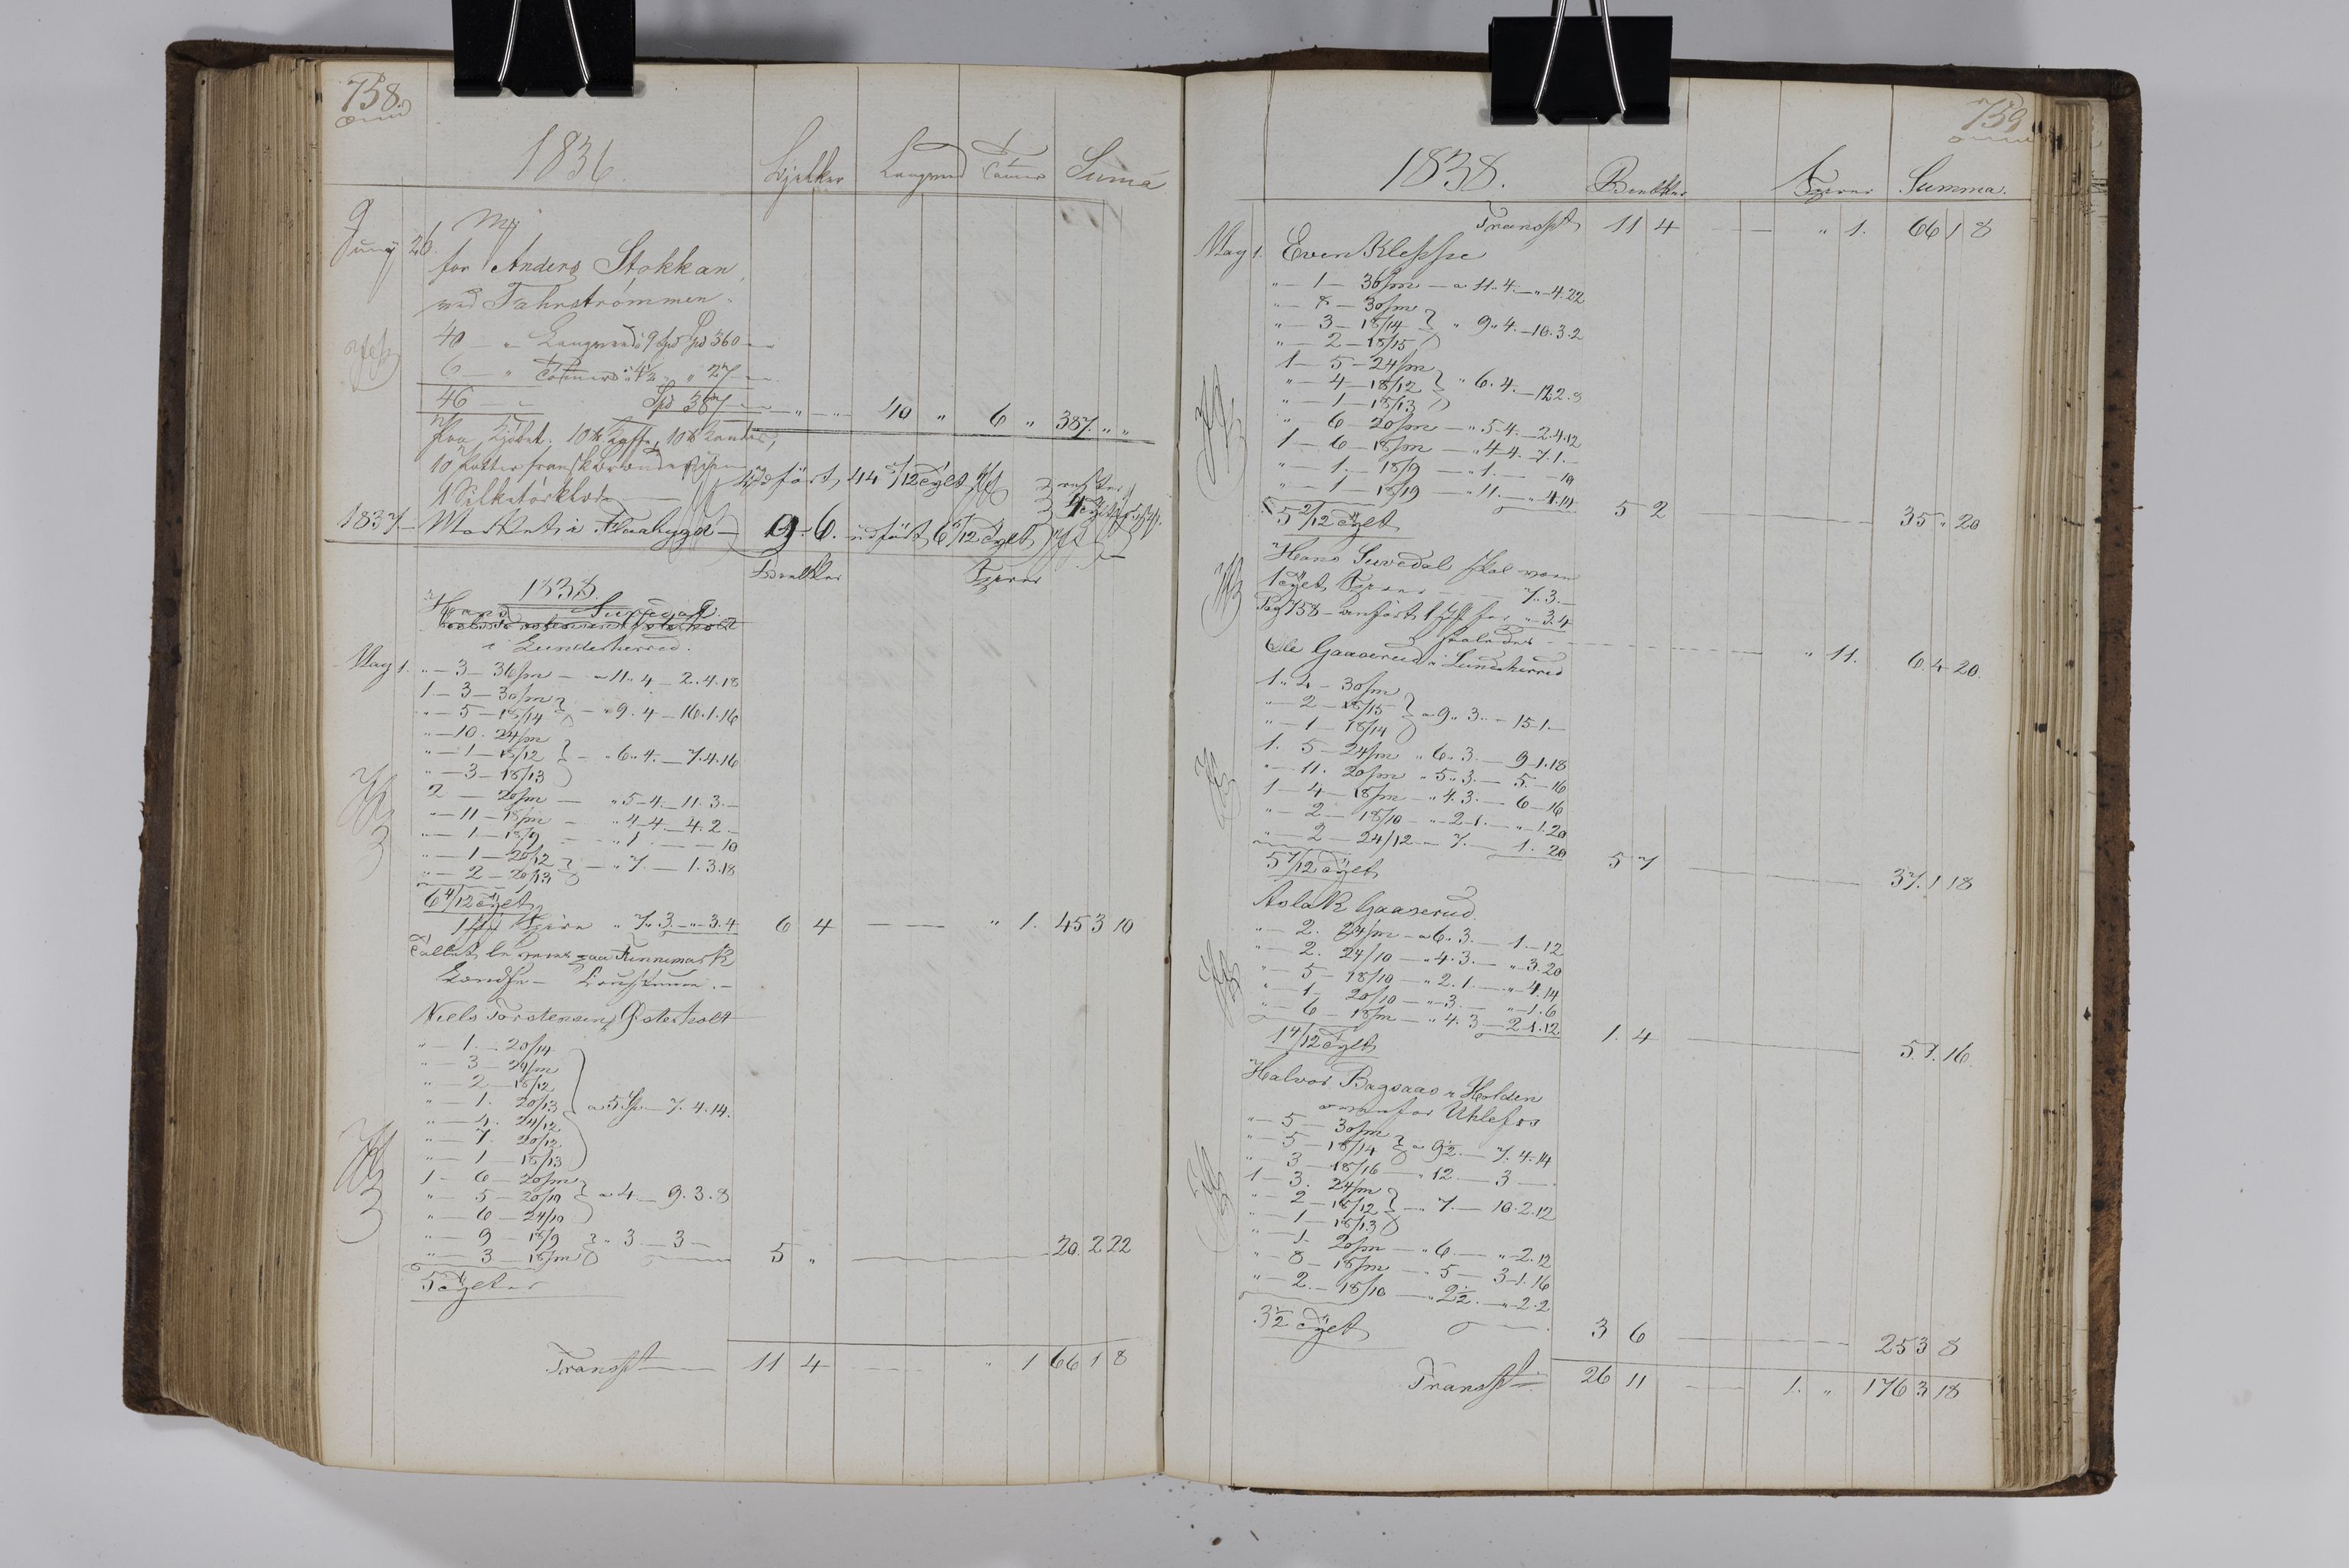 758.
1836.
Bjelker Langved Tømmer Suma
Juny 26.
for Anders Stokkan
ved Fahrstrømmen.
40 — " Langved à 9 Spd Spd 360 —
6 — " " 4½ " 27 —
46 — Spd 387 — " — " 40 " 6 " 387. " "
10 Potter fransk
1 Silketørklæde
udført, 44 /12 Tylt
1837. Mærket i Flaabygd — 9-6. udført 6 /12 Tylt
Bielker Spirer
1838.
Hans Suvedal
i Lundeherred.
May 1. " — 3 — 36/m — a 11 " 4 — 2.4.18
1 — 3 — 30/m
" — 5 — 18/14 } — " 9. 4 — 16.1.16
" — 10. 24/m
" — 1 — 18/12 } — " 6 " 4. — 7.4.16
" — 3 — 18/13
2 — 20/m — " 5-4. — 11. 3. —
" — 11 — 18/m — " 4-4. — 4. 2 —
" — 1. — 18/9 — " 1 — — 10
" — 1 — 20/12 } — " 7. — 1. 3.18
" — 2 — 20/13
6 4/12 Tylt
1 Spire " 7. 3. — " — 3. 4 6 4 — — " 1. 45 3 10
leveres paa Finnemark
Niels Torstensen Østerholt
" — 1. — 20/14
" — 3 — 24/m
" — 2 — 18/12
" — 1. 20/13 } a 5 Sp. — 7. 4. 14.
" — 4. 24/12
" — 7. 20/12
" — 1 — 18/13
1 — 6 — 20/m
" — 5 — 20/10 } a 4. — 9. 3. 8
" — 6 — 24/10
" — 9 — 18/9 } " 3. — 3 —
" — 3 — 18/m 5 " — 20. 2 22
5 Tylter
Transpt 11 4 — " 1 66 1 8
759
1838.
Bielker Spirer Summa.
Transpt 11 4 — — " 1. 66 1 8
May 1. Even Kleppe
" — 1 — 36/m — a 11. 4. — " — 4.22
" — 8 — 30/m
" — 3 — 18/14 } " 9 " 4. — 10. 3. 2
" — 2 — 18/15
1 — 5 — 24/m
" — 4 — 18/12 } " 6. 4. — 12 2. 8
" — 1 — 18/13
" — 6 — 20/m — " 5-4. — 2.4.12
1 — 6 — 18/m — " 4-4. — 7. 1. —
" — 1. — 18/9 — " 1. — — 10
" — 1 — 18/19 — " 11. — " — 4.14
5 2/12 Tylt 5 2 — 35 " 20
Hans Suvedal skal være
1 Tylt Spirer — 7. 3. —
Pag 758 — anført 1 for " — 3. 4
saaledes — " 11. 6. 4 20.
Ole Gaaserud i Lundeherred
1 " 4 — 30/m
" — 2 — 18/15 } a 9 " 3. — 15 1. —
" — 1 — 18/14
1. 5 — 24/m " 6 " 3. — 9 1. 18
" — 11. 20/m " 5 " 3. — 5. — 16
1 — 4 — 18/m — " 4. 3. — 6 — 16
" — 2 — 18/10 — " 2. 1. — " — 1. 20
" — 2 — 24/12 — " 7. — 1. 20
5 7/12 Tylt 5 7 — 37. 1 18
Aslak Gaaserud.
" — 2. 24/m — a 6. 3. — 1. — 12
" — 2. 24/10 — " 4. 3. — " 3. 20
" — 5 — 18/10 — " 2. 1. — " 4. 14
" — 1. 20/10 — " 3. — " 1. 6
" — 6 — 18/m — " 4. 3 — 2 1. 12.
1 4/12 Tylt 1. 4 — 5. 1. 16
Halvor Bagaas i Holden
ovenfor Uhlefos
" — 5 — 30/m
" — 5 — 18/14 } a 9½. — 7. 4. 14
" — 3 — 18/16 — " 12. — 3 —
1 — 3. 24/m
" — 2 — 18/12 } — " 7. — 10. 2. 12
" — 1 — 18/13
" — 1. 20/m — " 6. — " — 2. 12
" — 8 — 18/m — " 5 — 3 1. 16
" — 2. — 18/10 — " 2½. — " 2. 2
3½ Tylt 3 6 — 25 3 8
Transpt 26 11 — 1. " 176 3 18